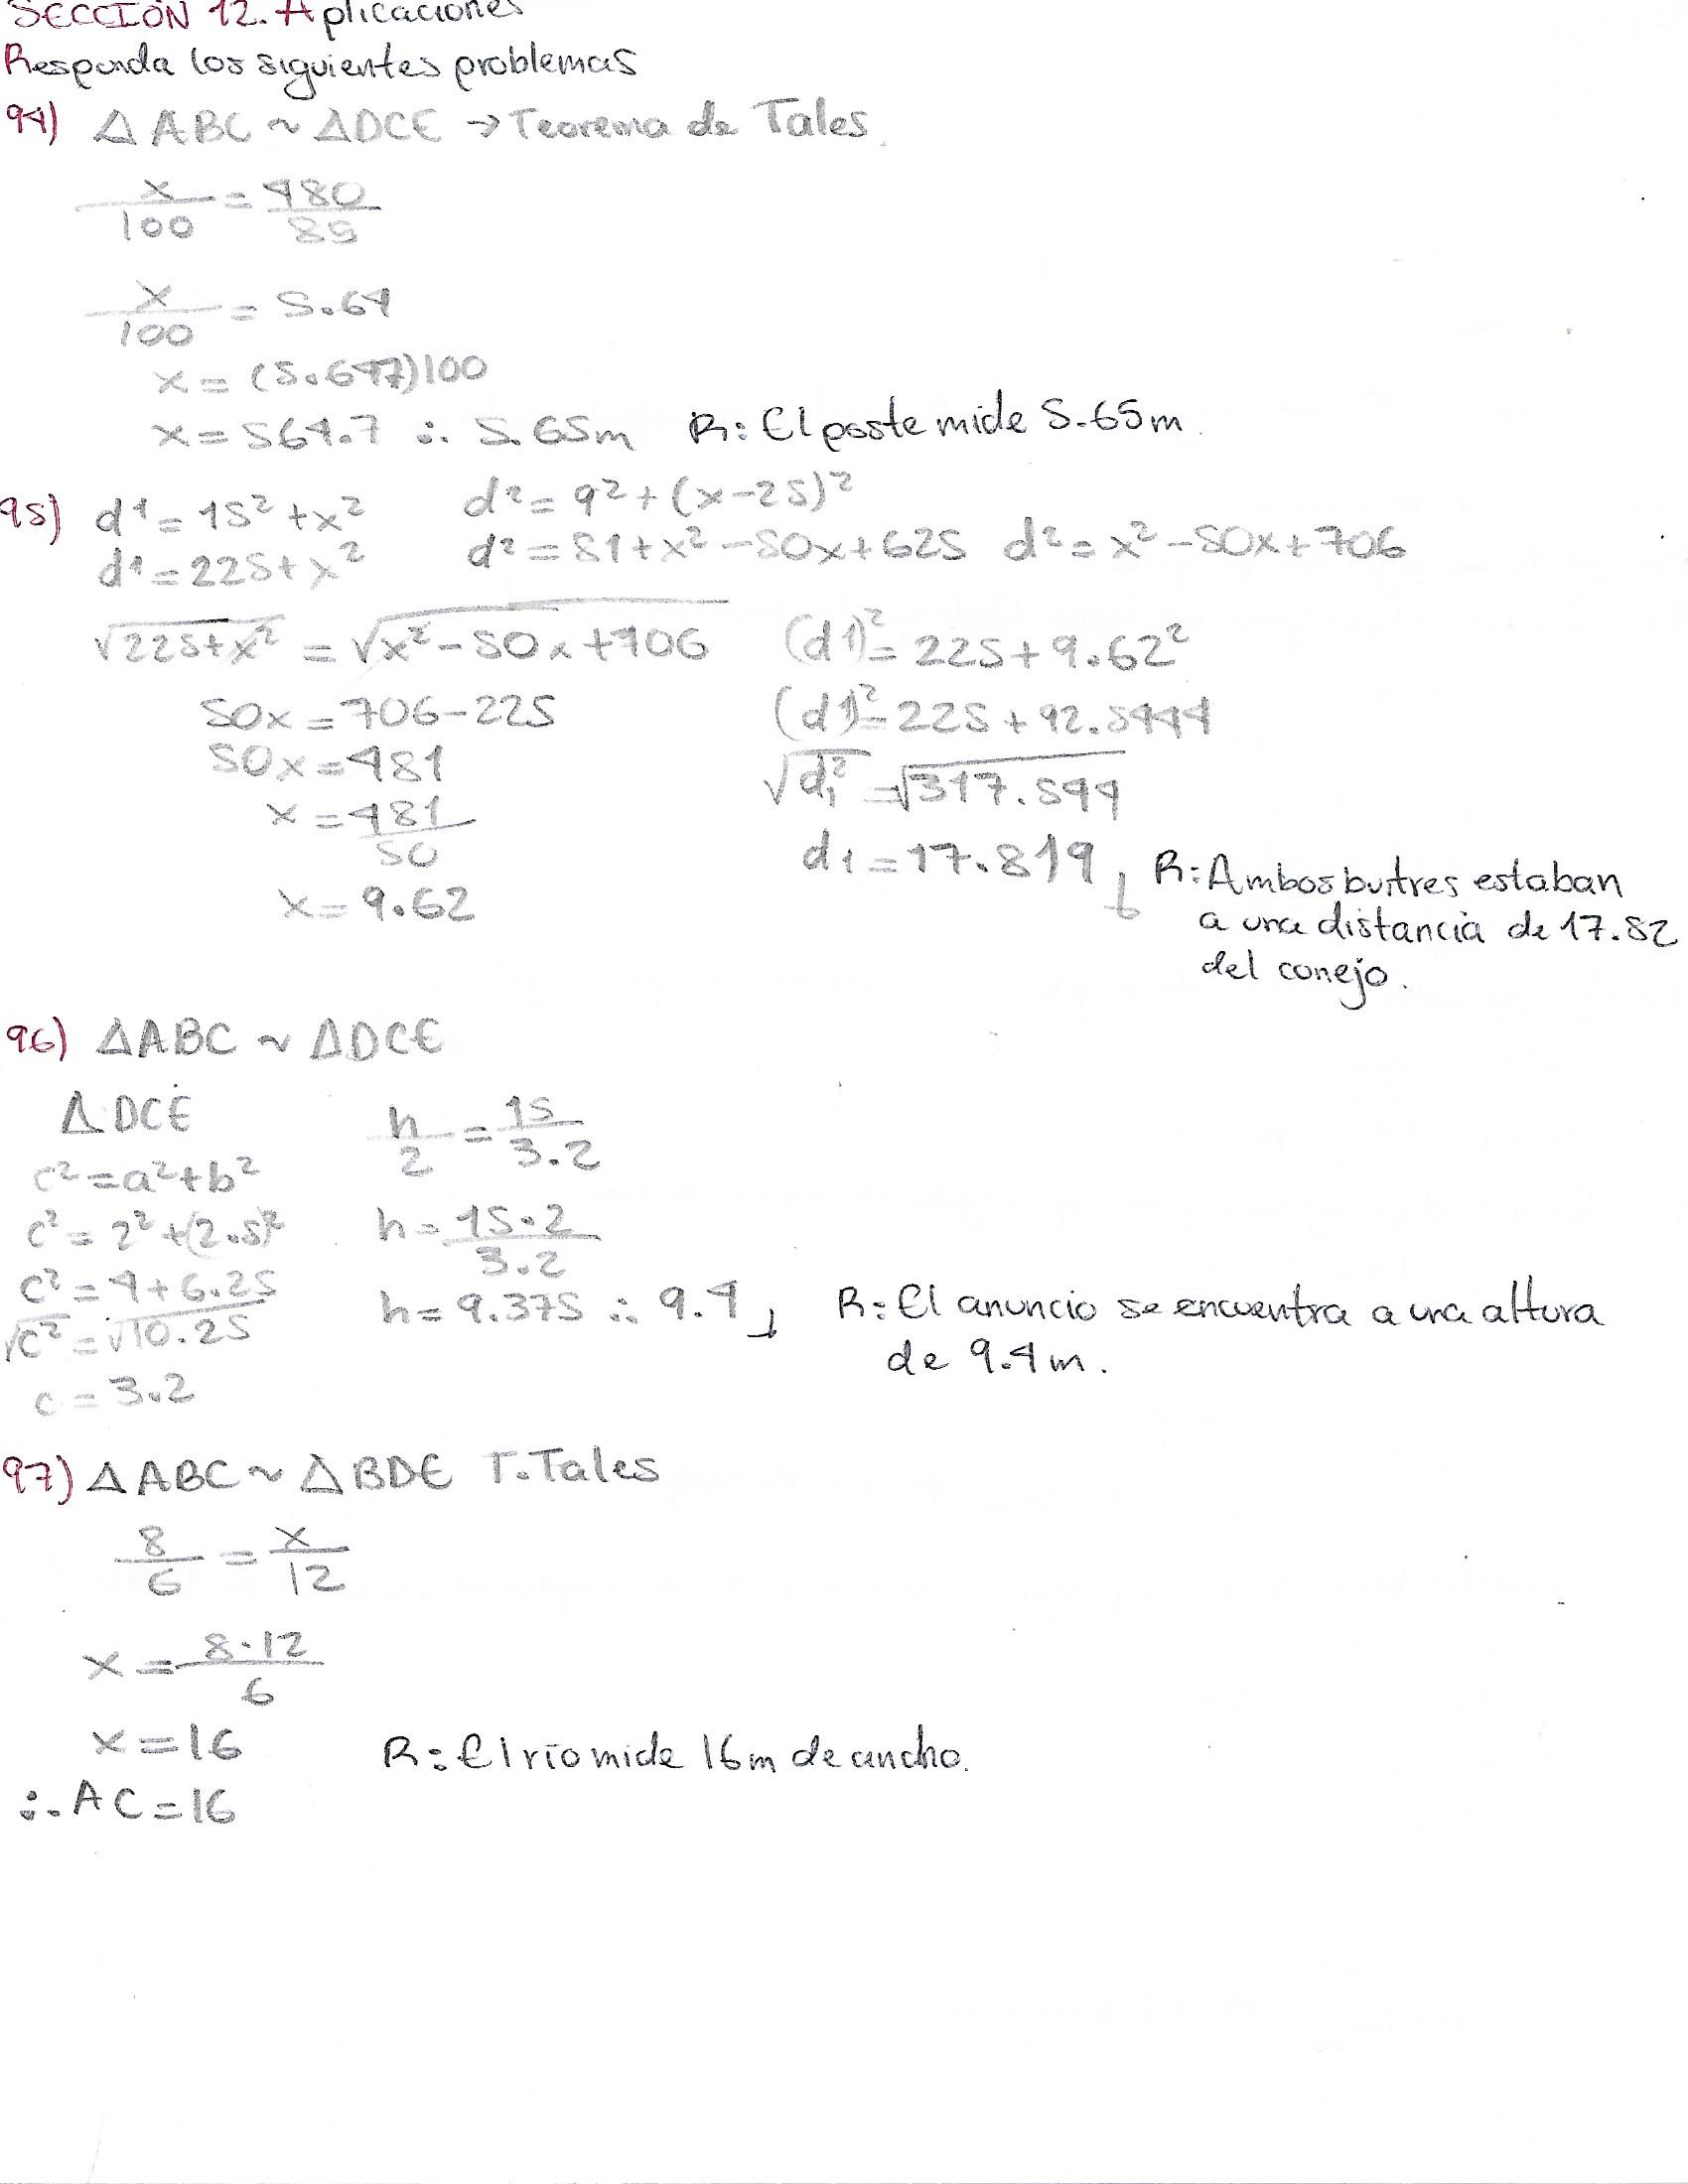 SECCIÓN 12. Aplicaciones
Responda los siguientes problemas
94) △ ABC ~ △DCE → Teorema de Tales.
x/100 = 480/85
x/100 = 5.64
x = (5.647)100
x = 564.7 ∴ 5.65m R: El poste mide 5.65m.
95) d1 = 15² + x² d² = 9² + (x-25)²
d1 = 225 + x² d² = 81 + x² - 50x + 625 d² = x² - 50x + 706
√225+x² = √x² - 50x + 706 (d1)² = 225 + 9.62²
50x = 706 - 225 (d1)² = 225 + 92.5444
50x = 481 √d₁² = √317.544
x = 481/50 d1 = 17.819
x = 9.62 R: Ambos buitres estaban
a una distancia de 17.82
del conejo.
96) △ABC ~ △DCE
△DCE h/2 = 15/3.2
c² = a² + b²
c² = 2² + (2.5)² h = 15·2/3.2
c² = 4 + 6.25 h = 9.375 ∴ 9.4 R: El anuncio se encuentra a una altura
√c² = √10.25 de 9.4m.
c = 3.2
97) △ABC ~ △BDE T. Tales
8/6 = x/12
x = 8·12/6
x = 16 R: El río mide 16m de ancho.
∴ AC = 16